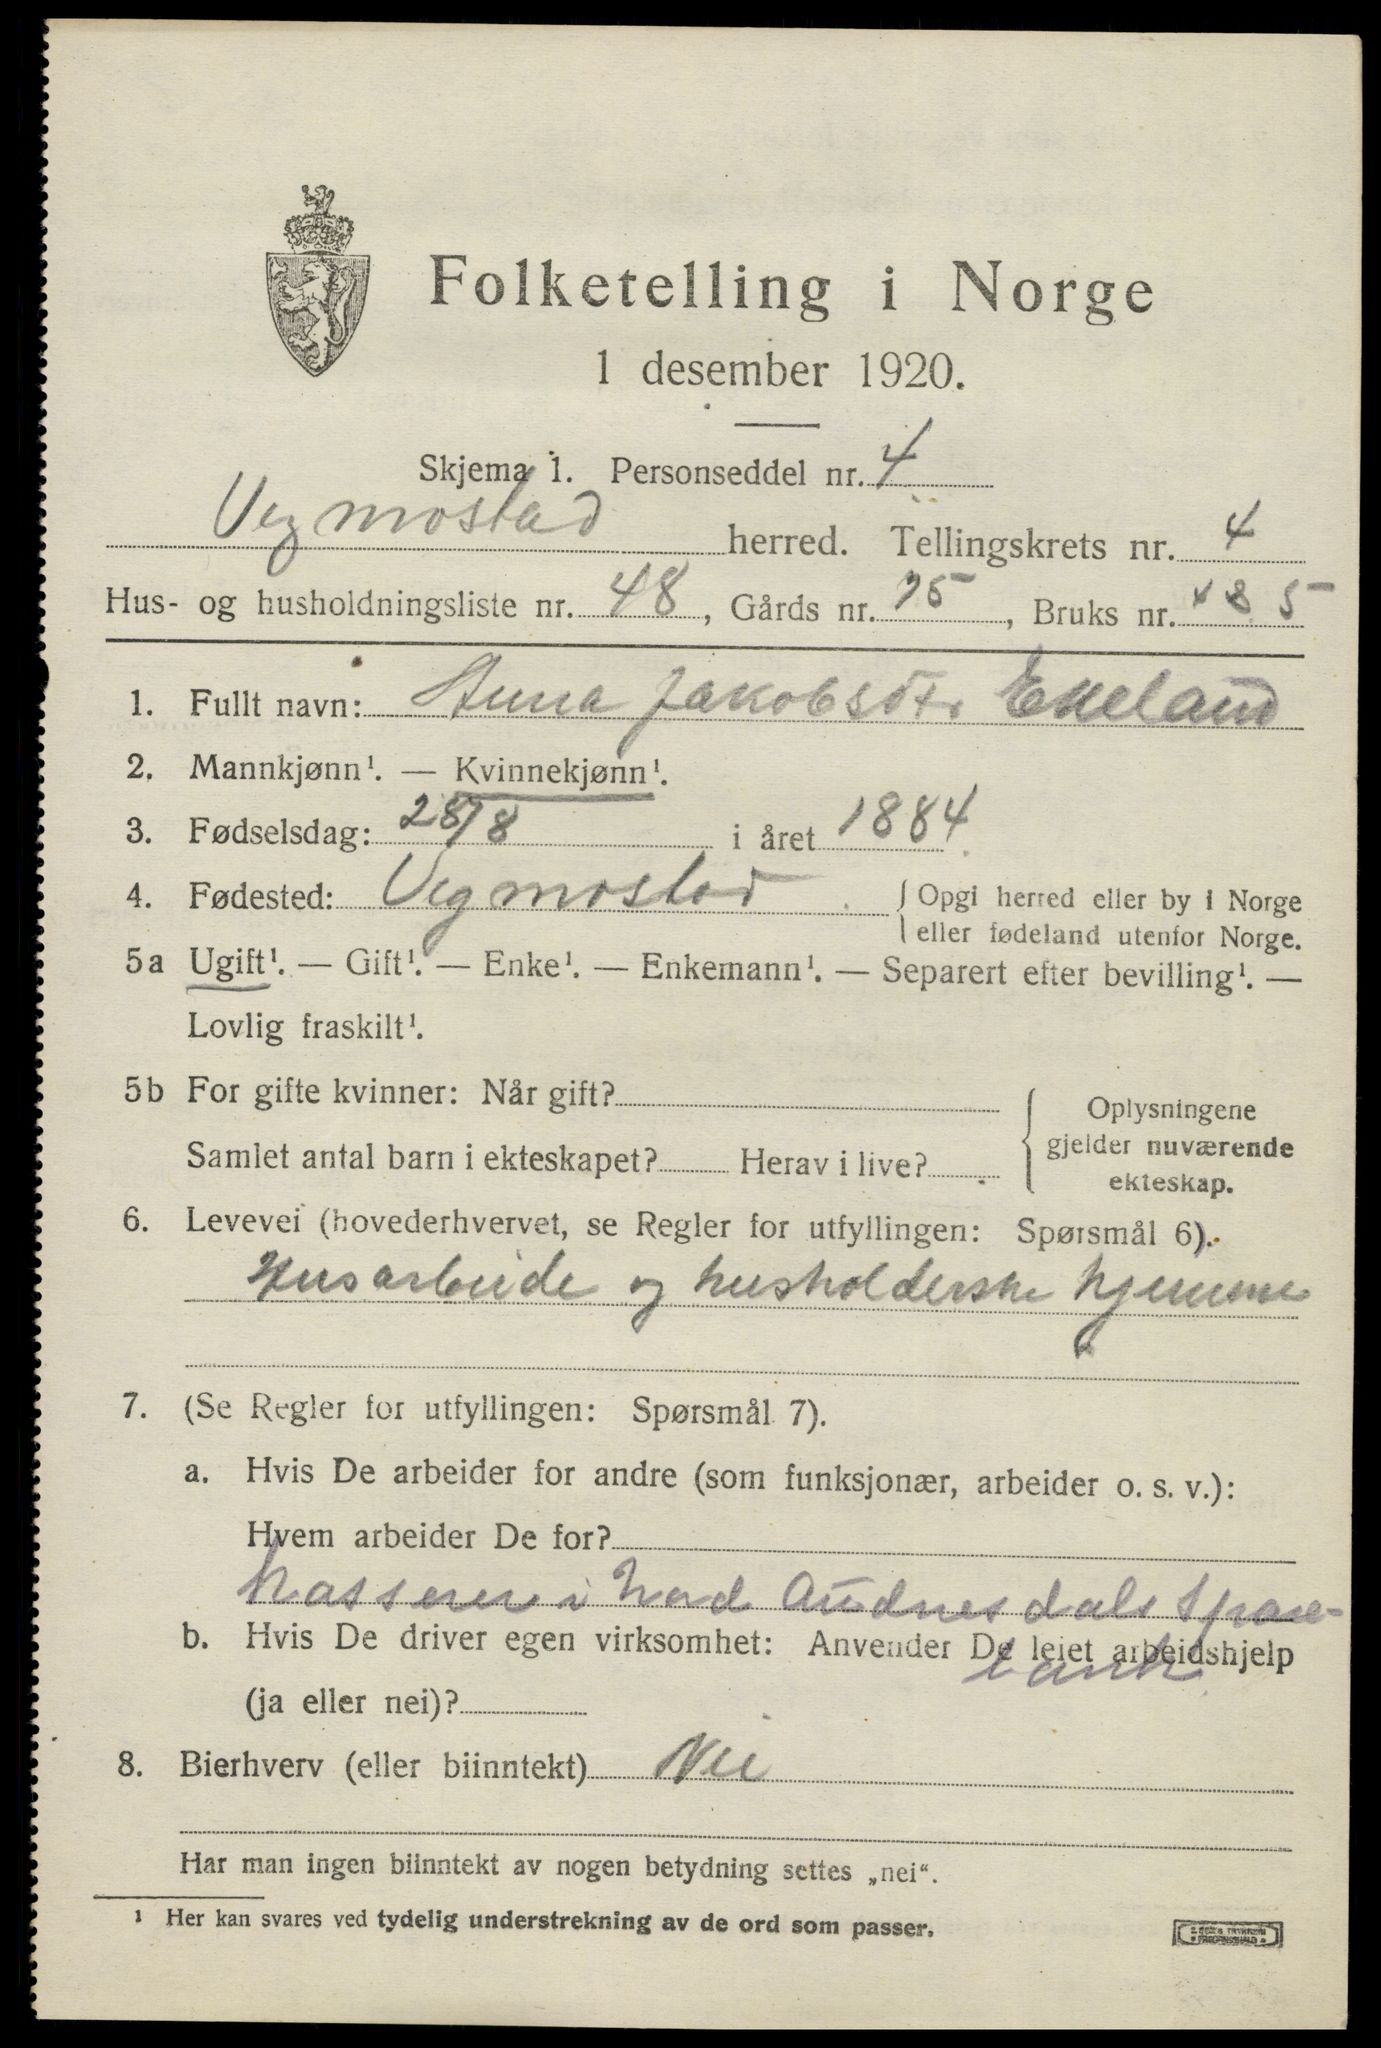 Folketelling i Norge
1 desember 1920.
Skjema 1. Personseddel nr. 4
Vegmostad herred. Tellingskrets nr. 4
Hus- og husholdningsliste nr. 48, Gårds nr. 25, Bruks nr. 5
1. Fullt navn: Anna Jakobsdt. Ekeland
2. Mannkjønn¹. — Kvinnekjønn¹.
3. Fødselsdag: 28/8 i året 1884
4. Fødested: Vegmostad { Opgi herred eller by i Norge
eller fødeland utenfor Norge.
5a Ugift¹. — Gift¹. — Enke¹. — Enkemann¹. — Separert efter bevilling¹. —
Lovlig fraskilt¹.
5b For gifte kvinner: Når gift?
Samlet antal barn i ekteskapet? Herav i live?
{ Oplysningene
gjelder nuværende
ekteskap.
6. Levevei (hovederhvervet, se Regler for utfyllingen: Spørsmål 6).
Husarbeide og husholderske hjemme
7. (Se Regler for utfyllingen: Spørsmål 7).
a. Hvis De arbeider for andre (som funksjonær, arbeider o. s. v.):
Hvem arbeider De for?
kasserer i Nord Audnesdals Spare-
bank
b. Hvis De driver egen virksomhet: Anvender De leiet arbeidshjelp
(ja eller nei)?
8. Bierhverv (eller biinntekt) Nei
Har man ingen biinntekt av nogen betydning settes „nei“.
¹ Her kan svares ved tydelig understrekning av de ord som passer.